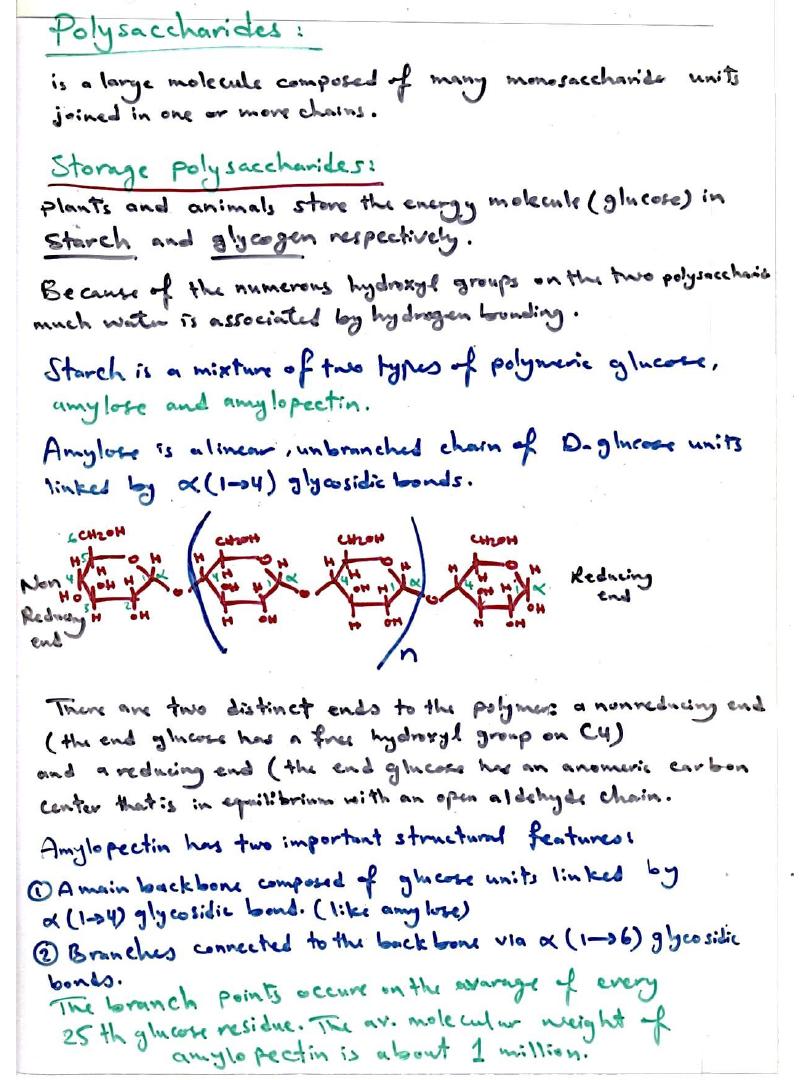 Polysaccharides :
is a large molecule composed of many monosaccharide units
joined in one or more chains.
Storage polysaccharides:
plants and animals store the energy molecule (glucose) in
Starch and glycogen respectively.
Because of the numerous hydroxyl groups on the two polysaccharide
much water is associated by hydrogen bounding.
Starch is a mixture of two types of polymeric glucose,
amylose and amylopectin.
Amylose is a linear, unbranched chain of D-glucose units
linked by α(1→4) glycosidic bonds.
6 CH2OH CH2OH CH2OH CH2OH
H 5 O H H O H H O H H O H
4 OH H 1 α 4 OH H 1 α 4 OH H 1 α 4 OH H 1 α
HO 3 2 O O O OH
H OH H OH H OH H OH
Non
Reducing
end
Reducing
end
n
There are two distinct ends to the polymer: a nonreducing end
(the end glucose has a free hydroxyl group on C4)
and a reducing end (the end glucose has an anomeric carbon
center that is in equilibrium with an open aldehyde chain.
Amylopectin has two important structural features:
① A main backbone composed of glucose units linked by
α(1→4) glycosidic bond. (like amylose)
② Branches connected to the backbone via α(1→6) glycosidic
bonds.
The branch points occure on the avarage of every
25 th glucose residue. The av. molecular weight of
amylopectin is about 1 million.